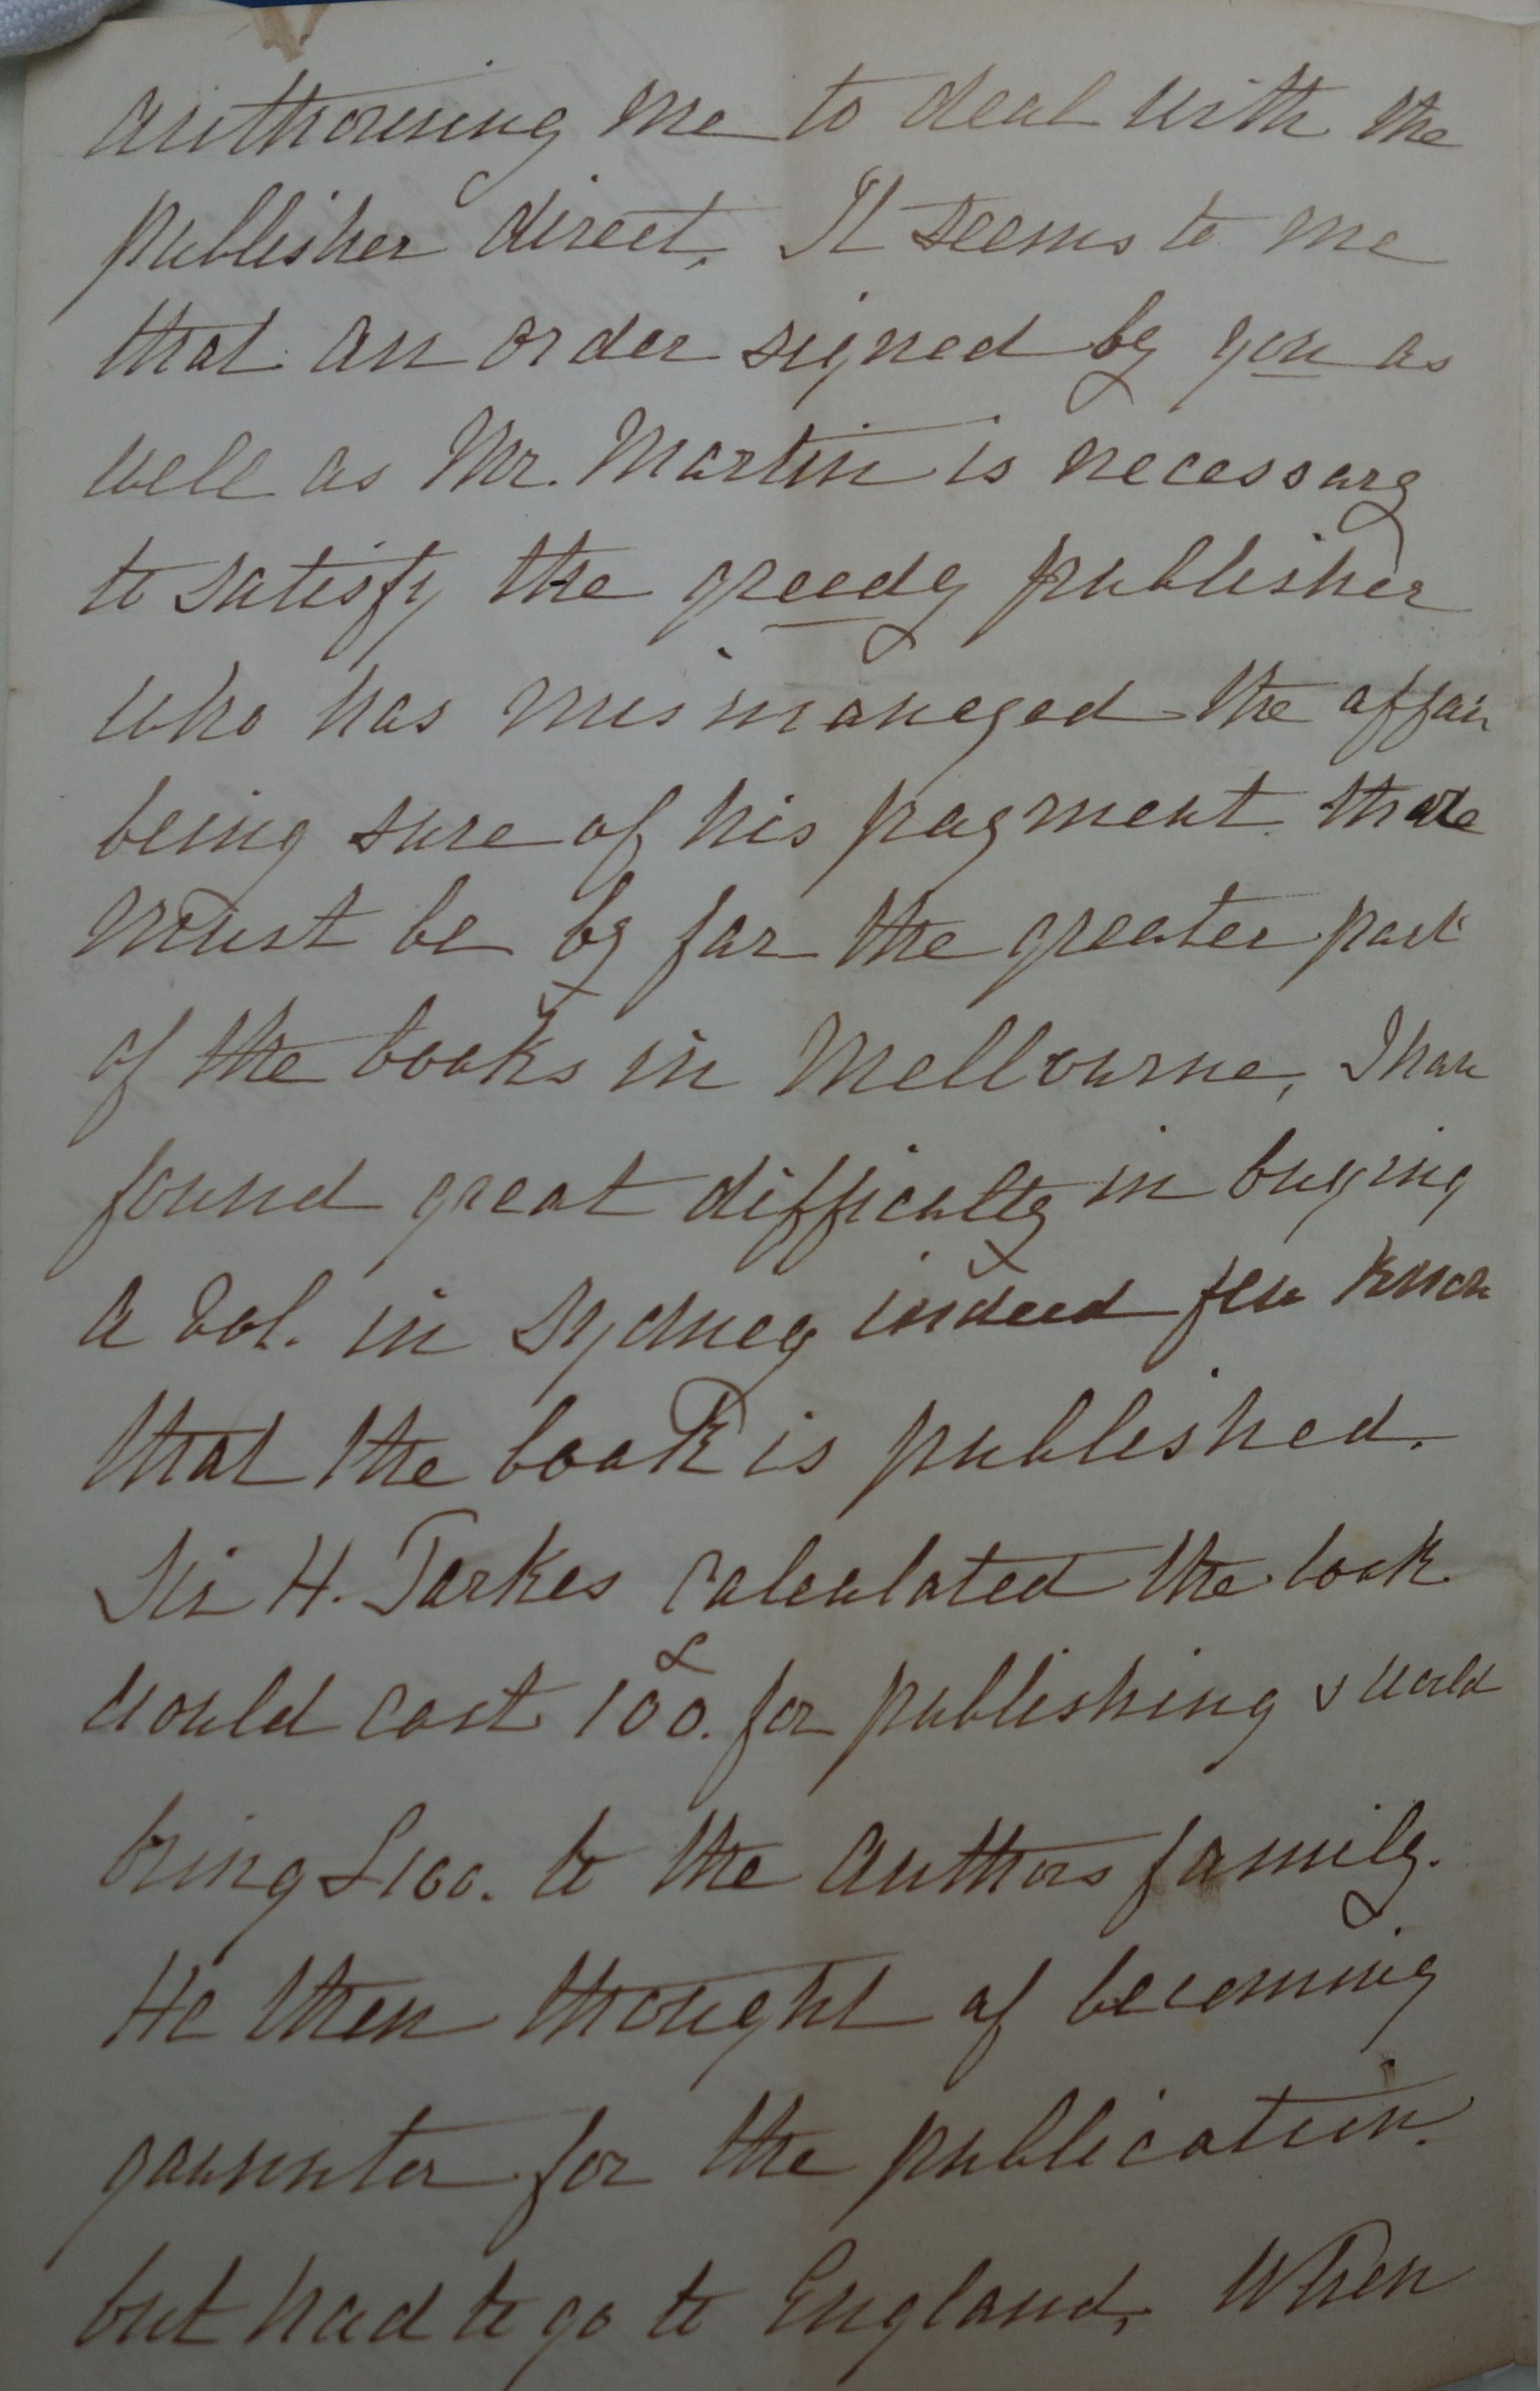 authorising me to deal with the
publisher direct. It seems to me
that an order signed by you as
well as Mr. Martin is necessary
to satisfy the greedy publisher
who has mismanaged the affair
being sure of his payment. there
must be by far the greater part
of the books in Melbourne, I have
found great difficulty in buying
a vol. in Sydney indeed few know
that the book is published.
Sir H. Parkes calculated the book
would cost 100£. for publishing & would
bring £100. to the authors family.
He then thought of becoming
for the publication.
but had to go to England, When